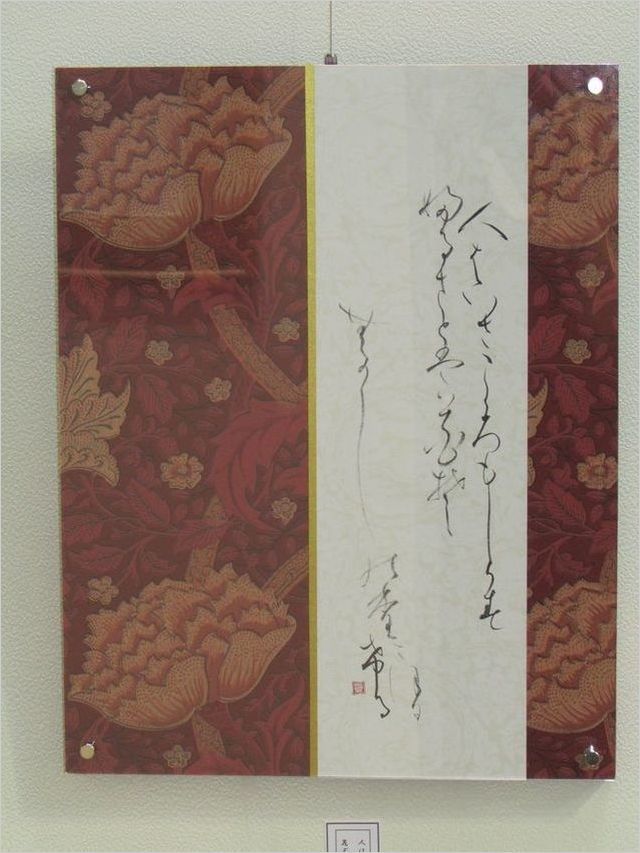 人はいさこゝろもしらす
ふるさとは花そ
むかし
の香ににほひ
ける